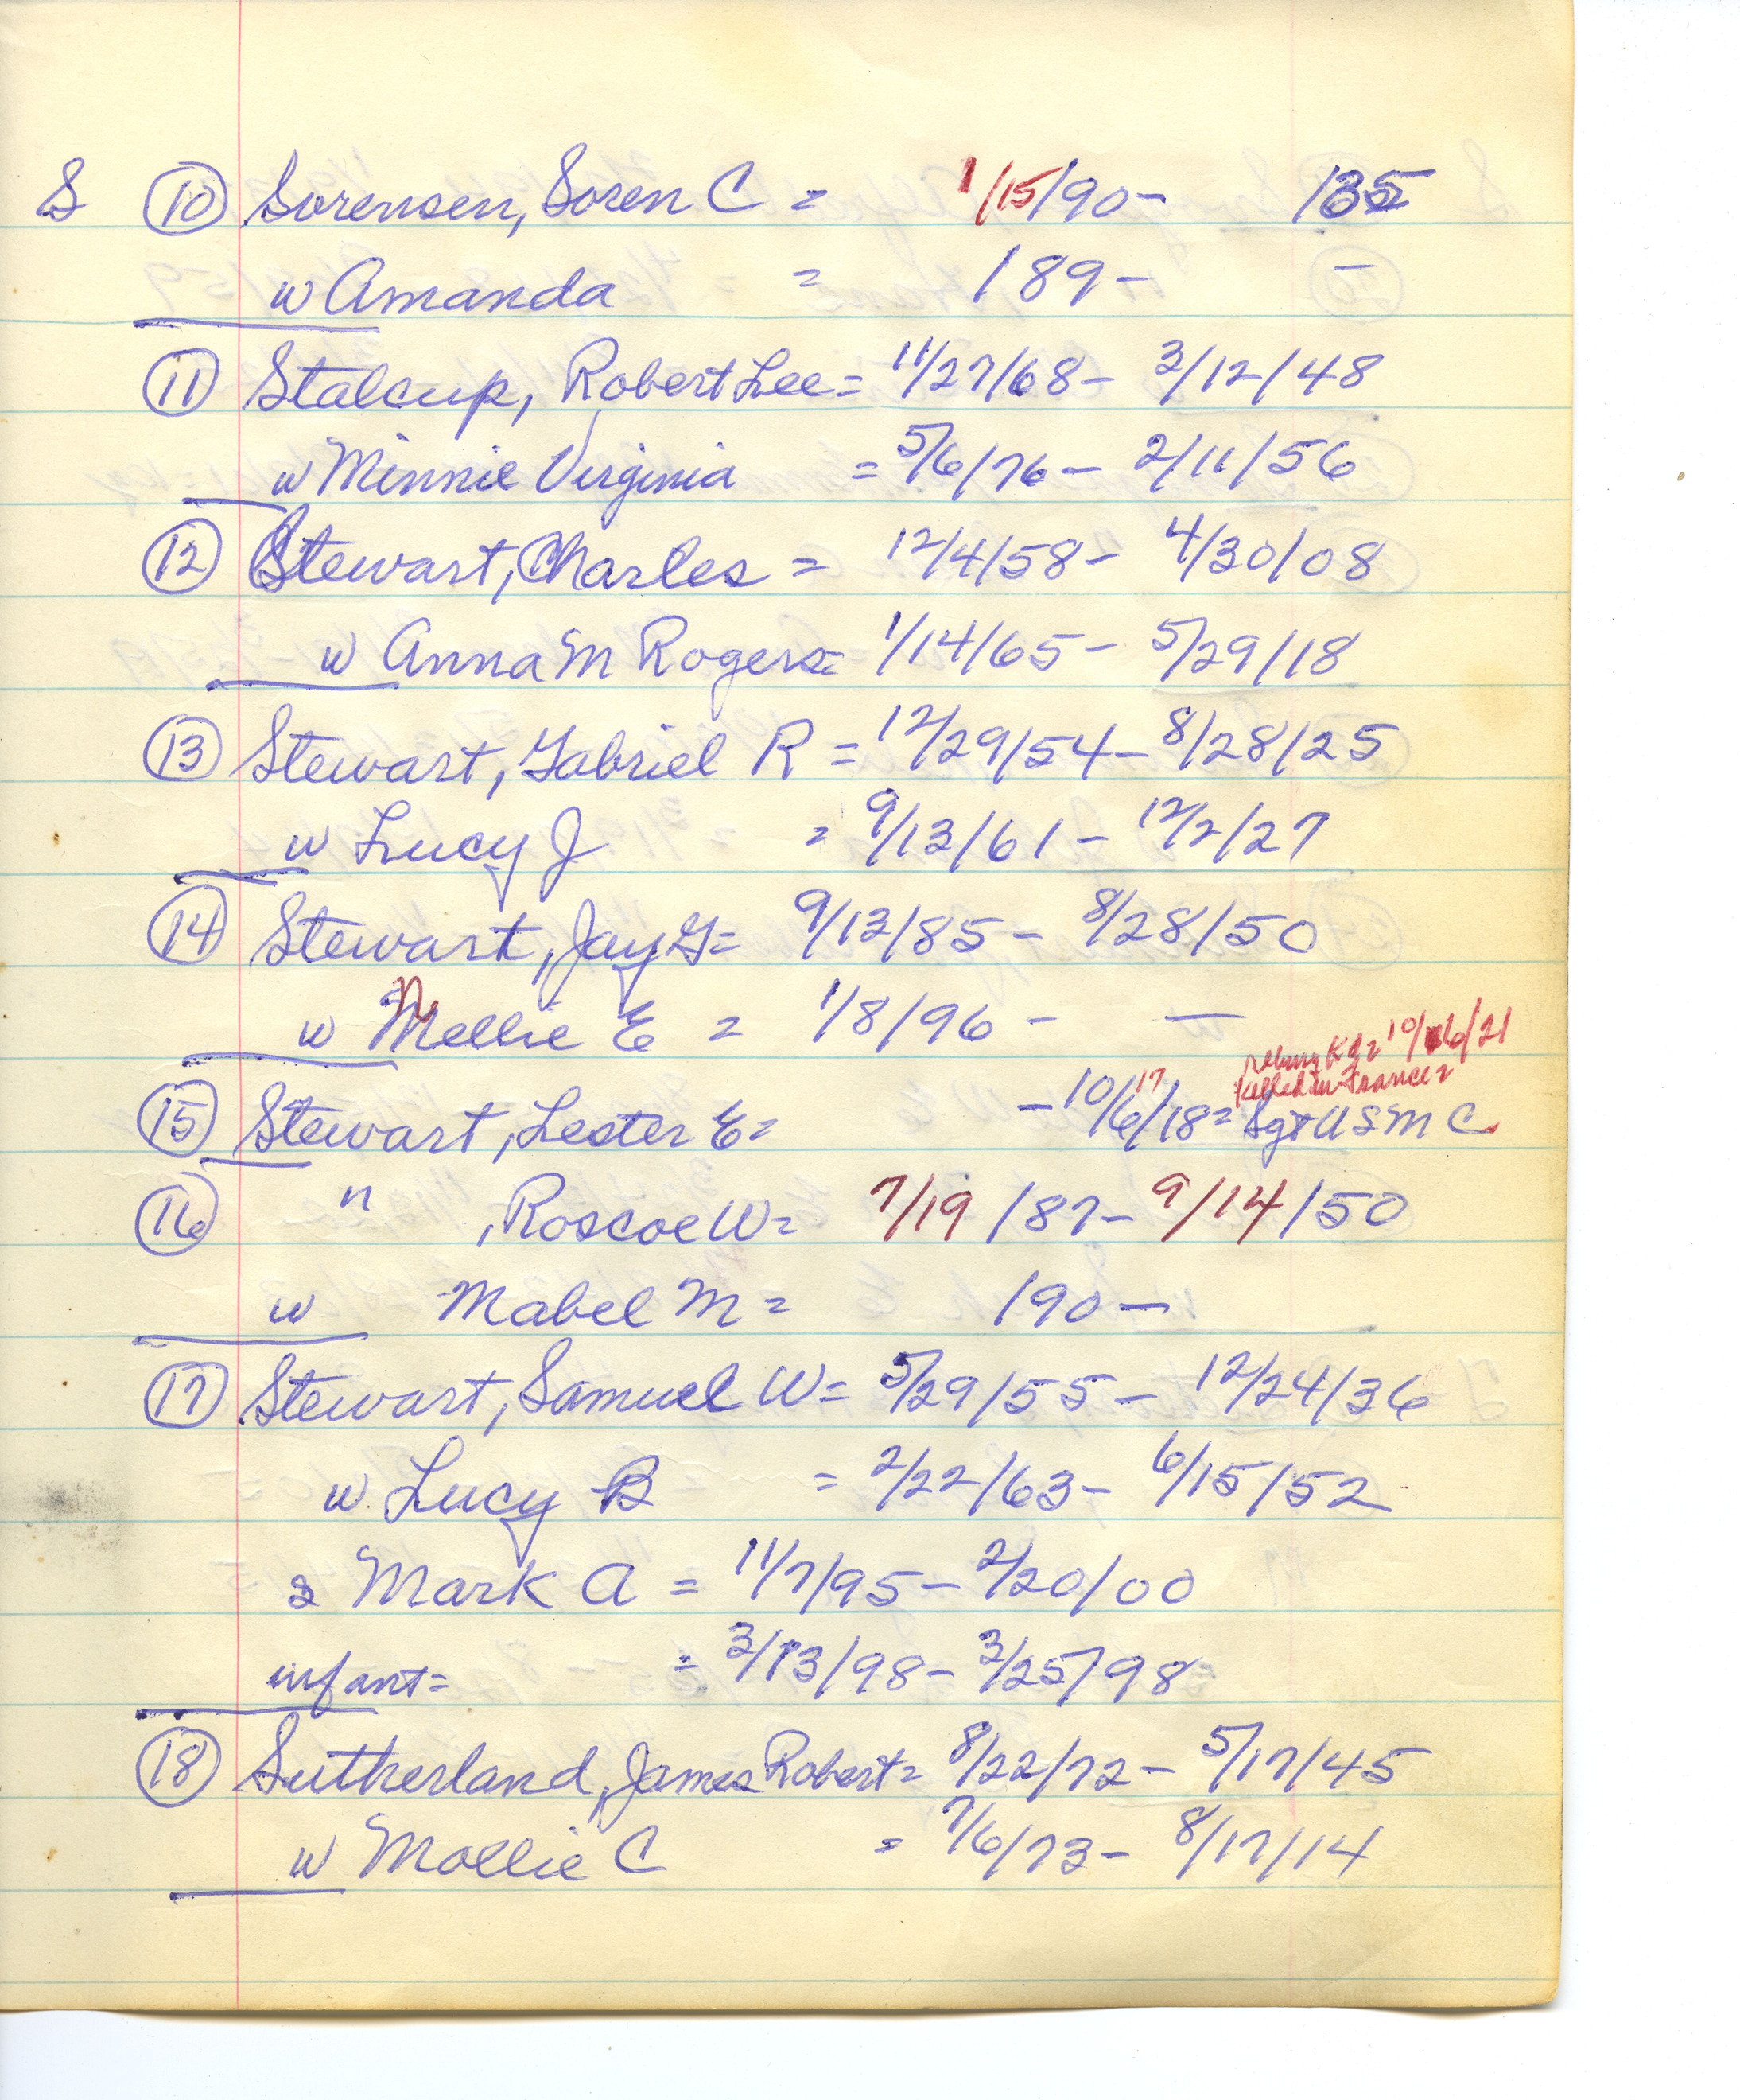 S (10) Sorensen, Soren C = 1/15/90 - /35
w Amanda = /89 - -
(11) Stalcup, Robert Lee = 11/27/68 - 3/12/48
w Minnie Virginia = 5/6/76 - 2/11/56
(12) Stewart, Charles = 12/4/58 - 4/30/08
w Anna M Rogers = 1/14/65 - 5/29/18
(13) Stewart, Gabriel R = 12/29/54 - 8/28/25
w Lucy J = 9/13/61 - 12/2/27
(14) Stewart, Jay G = 9/13/85 - 8/28/50
w Nellie E = 1/8/96 - -
reburry Kg = 10/6/21
killed in France =
(15) Stewart, Lester E = - 10/6/18 = Sgt USMC
17
(16) " , Roscoe W = 7/19/87 - 9/14/50
w Mabel M = /90 -
(17) Stewart, Samuel W = 5/29/55 - 12/24/36
w Lucy B = 2/22/63 - 6/15/52
s Mark A = 11/7/95 - 2/20/00
infant = = 3/13/98 - 3/25/98
(18) Sutherland, James Robert = 8/22/72 - 5/17/45
w Mollie C = 7/6/73 - 8/17/14